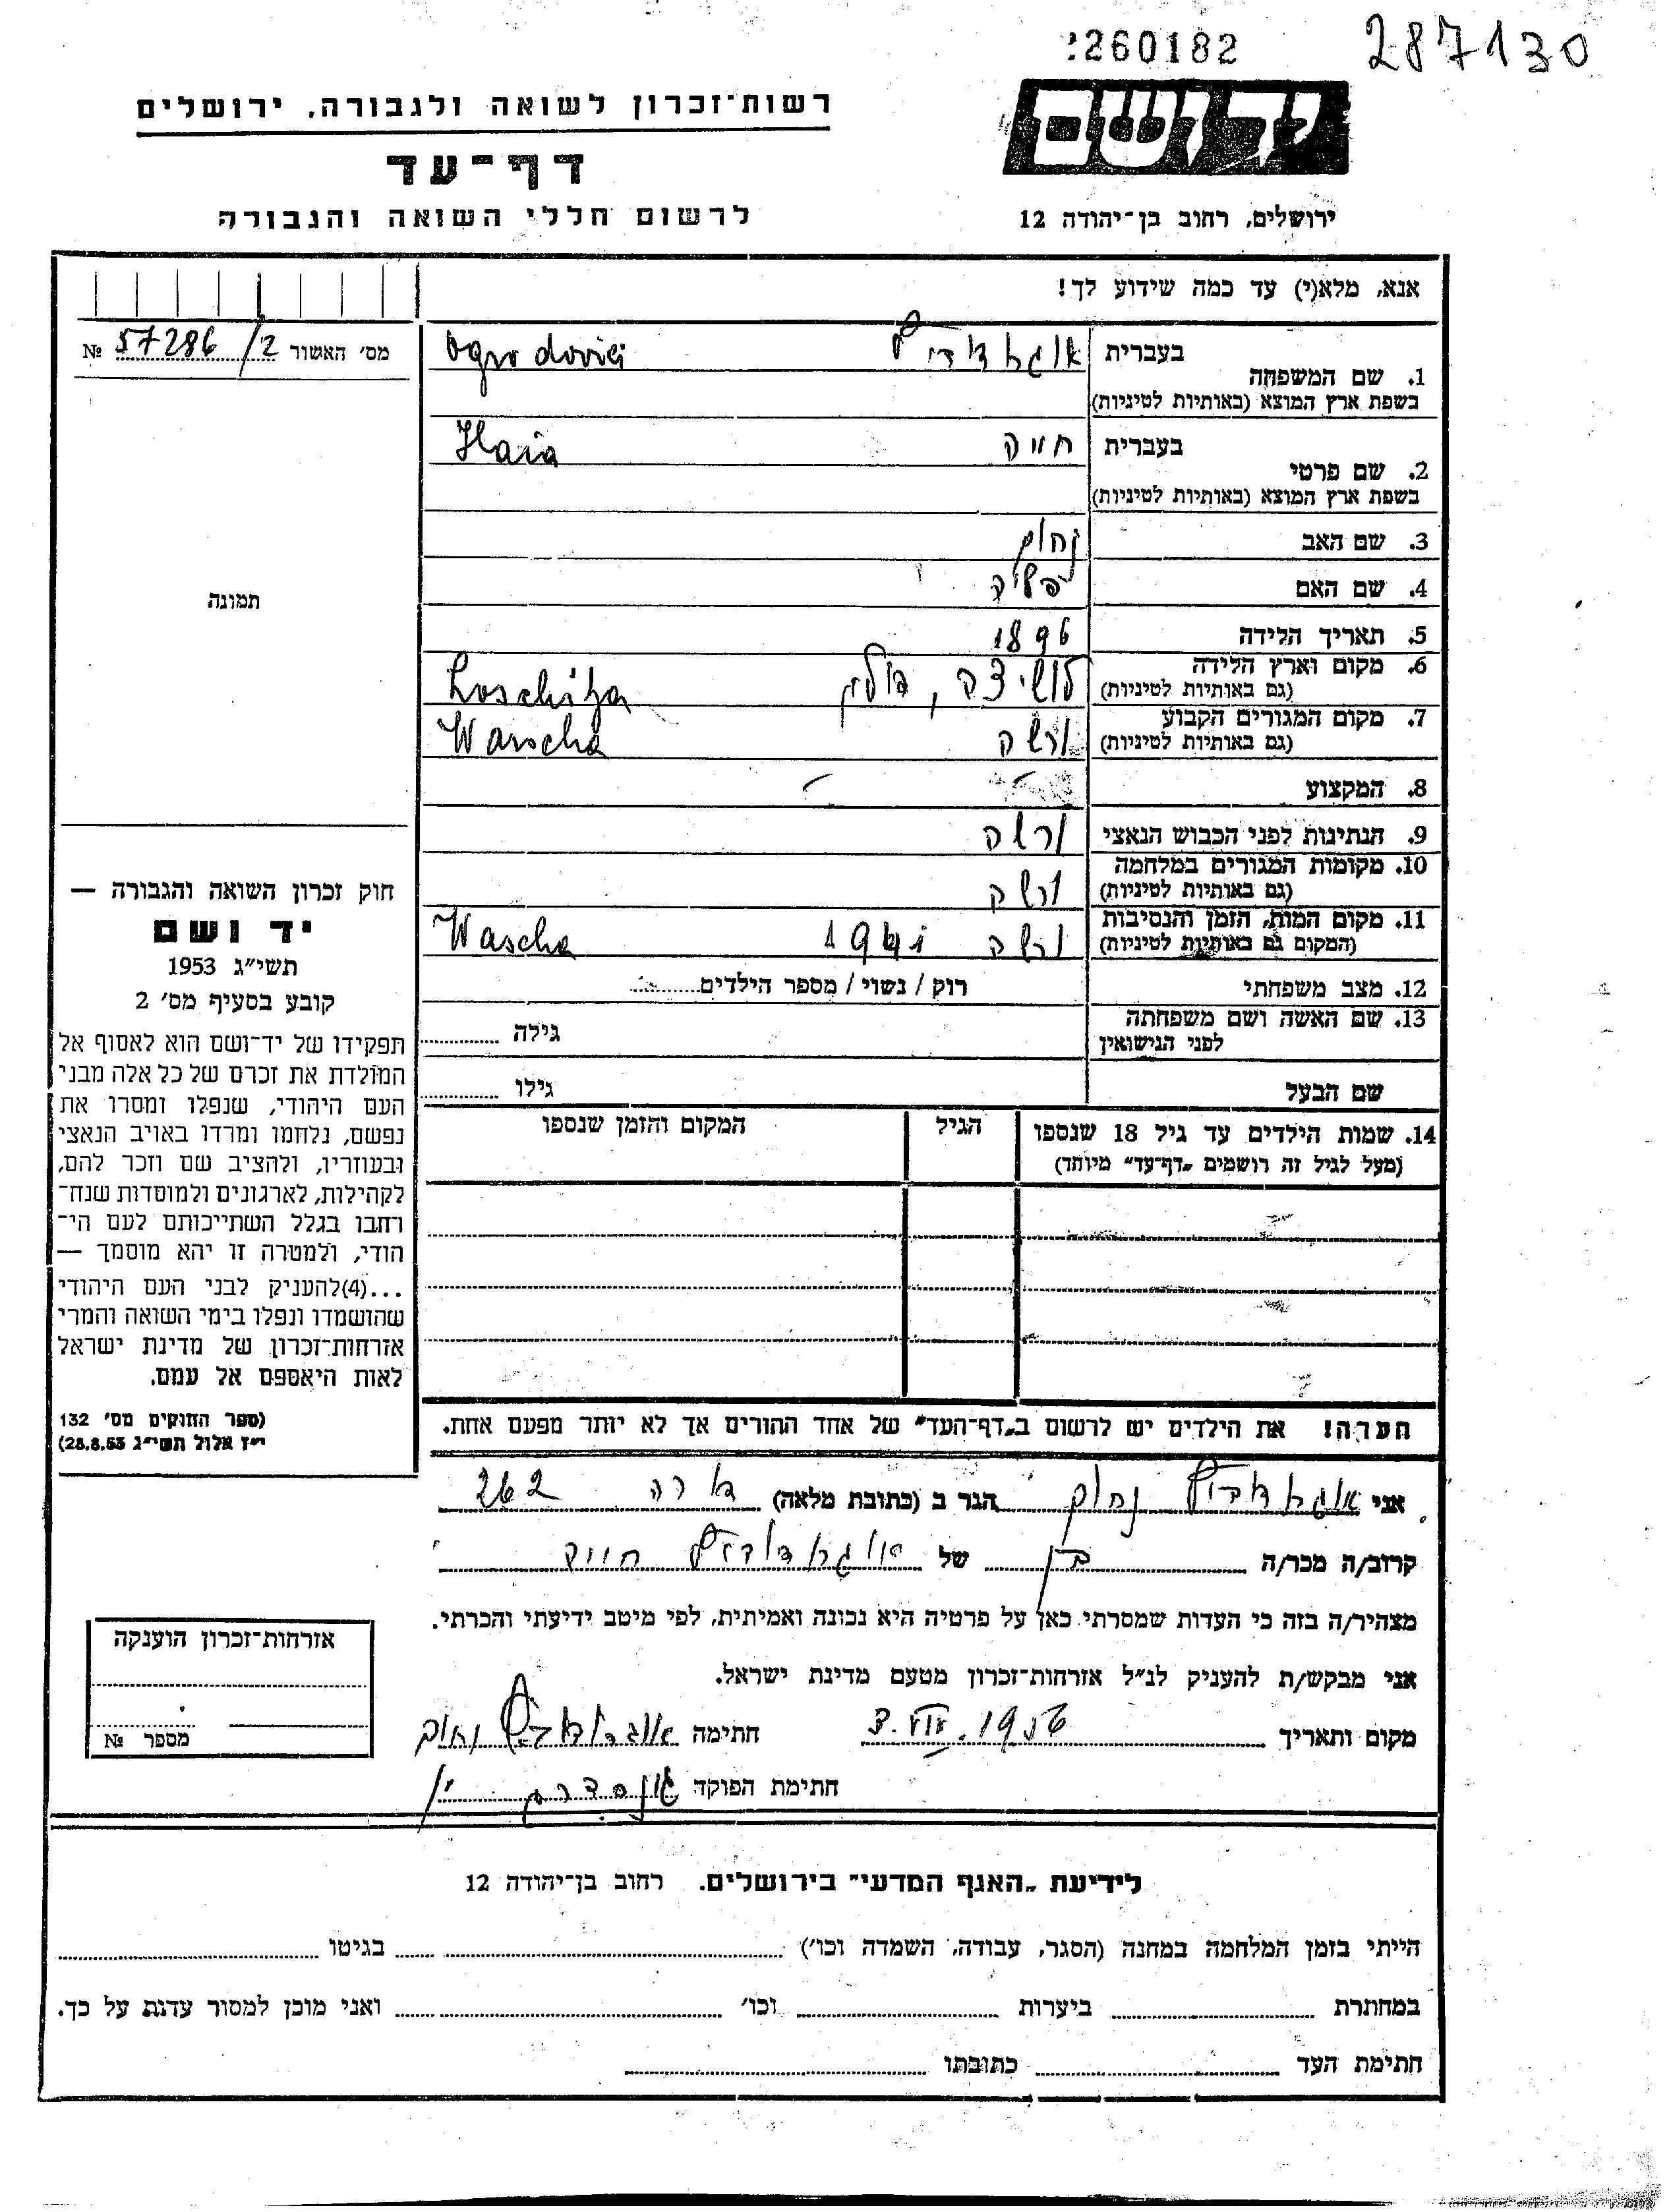 260182
287130
יד ושם
רשות־זכרון לשואה ולגבורה, ירושלים
דף־עד
לרשום חללי השואה והגבורה
ירושלים, רחוב בן־יהודה 12
אנא, מלא(י) עד כמה שידוע לך!
מס׳ האשור 57286/2 №
תמונה
1. שם המשפחה בעברית Ogrodovici
בשפת ארץ המוצא (באותיות לטיניות)
2. שם פרטי בעברית חייה Haia
בשפת ארץ המוצא (באותיות לטיניות)
3. שם האב נחום
4. שם האם
5. תאריך הלידה 1896
6. מקום וארץ הלידה לושיצה, פולין Loschitza
(גם באותיות לטיניות)
7. מקום המגורים הקבוע ורשה Warscha
(גם באותיות לטיניות)
8. המקצוע
9. הנתינות לפני הכבוש הנאצי ורשה
10. מקומות המגורים במלחמה ורשה
(גם באותיות לטיניות)
11. מקום המות, הזמן והנסיבות ורשה 1941 Wascha
(המקום גם באותיות לטיניות)
12. מצב משפחתי רוק / נשוי / מספר הילדים
13. שם האשה ושם משפחתה גילה
לפני הנישואין
שם הבעל גילו
14. שמות הילדים עד גיל 18 שנספו הגיל המקום והזמן שנספו
(מעל לגיל זה רושמים „דף־עד״ מיוחד)
הערה! את הילדים יש לרשום ב„דף־העד״ של אחד ההורים אך לא יותר מפעם אחת.
חוק זכרון השואה והגבורה —
יד ושם
תשי״ג 1953
קובע בסעיף מס׳ 2
תפקידו של יד־ושם הוא לאסוף אל
המולדת את זכרם של כל אלה מבני
העם היהודי, שנפלו ומסרו את
נפשם, נלחמו ומרדו באויב הנאצי
ובעוזריו, ולהציב שם וזכר להם,
לקהילות, לארגונים ולמוסדות שנח־
רחבו בגלל השתייכותם לעם הי־
הודי, ולמטרה זו יהא מוסמך —
...(4)להעניק לבני העם היהודי
שהושמדו ונפלו בימי השואה והמרי
אזרחות־זכרון של מדינת ישראל
לאות היאספם אל עמם.
(ספר החוקים מס׳ 132
י״ז אלול תשי״ג 28.8.53)
אני נחום הגר ב (כתובת מלאה) 262
קרוב/ה מכר/ה בן של חייה
מצהיר/ה בזה כי העדות שמסרתי כאן על פרטיה היא נכונה ואמיתית, לפי מיטב ידיעתי והכרתי.
אני מבקש/ת להעניק לנ״ל אזרחות־זכרון מטעם מדינת ישראל.
מקום ותאריך 3.VII.1956 חתימה נחום
חתימת הפוקד
אזרחות־זכרון הוענקה
מספר №
לידיעת „האגף המדעי״ בירושלים. רחוב בן־יהודה 12
הייתי בזמן המלחמה במחנה (הסגר, עבודה, השמדה וכו׳) בגיטו
במחתרת ביערות וכו׳ ואני מוכן למסור עדות על כך.
חתימת העד כתובתו